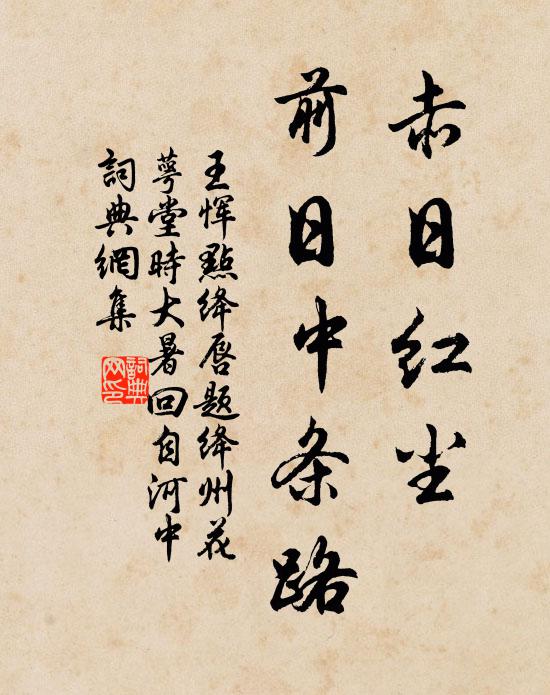 赤日红尘
前日中条路
王恽點绛唇题绛州花
萼堂時大暑回自河中
詞典網集
詞典
网印